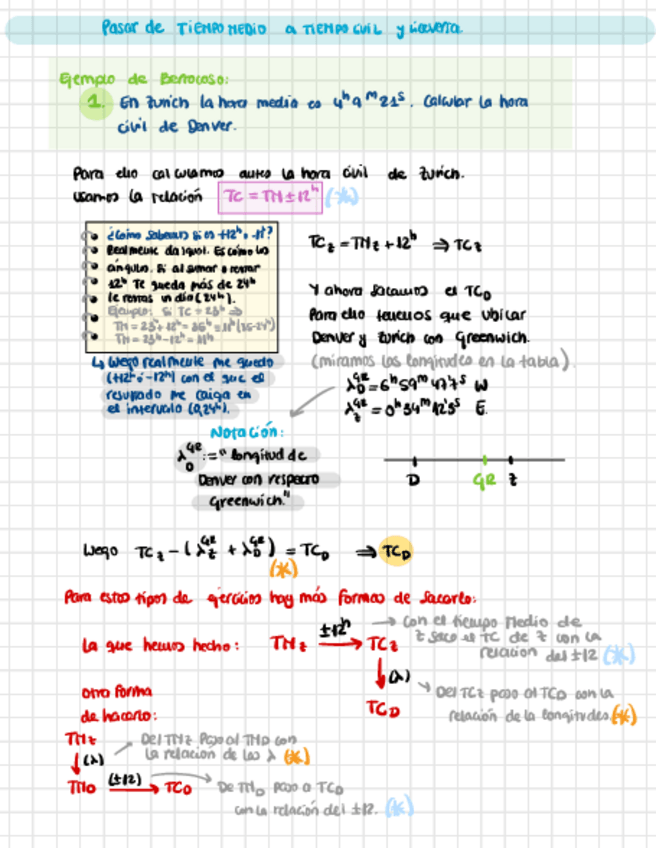 Pasar de TIEMPO MEDIO a TIEMPO CIVIL y viceversa
Ejemplo de Berrocoso:
1. En Zurich la hora media es 4h 9m 21s. Calcular la hora
civil de Denver.
Para ello calculamos antes la hora civil de Zurich.
Usamos la relación TC = TM ± 12h (*)
¿Cómo sabemos si es +12h o -12h?
Realmente da igual. Es como los
ángulos. Si al sumar o restar
12h te queda más de 24h
le restas un día (24h).
Ejemplo: Si TC = 23h ⇒
TM = 23h + 12h = 35h = 11h (35-24h)
TM = 23h - 12h = 11h
↳ Luego realmente me quedo
(+12h ó -12h) con el que el
resultado me caiga en
el intervalo (0,24h).
TCz = TMz + 12h ⇒ TCz
Y ahora sacamos el TCD
Para ello tenemos que ubicar
Denver y Zurich con Greenwich.
(miramos las longitudes en la tabla)
λD GR = 6h 59m 47'7s W
λz GR = 0h 34m 12'3s E.
Notación:
λD GR := "longitud de
Denver con respecto
Greenwich."
D GR z
Luego TCz - (λz GR + λD GR) = TCD ⇒ TCD
(*)
Para estos tipos de ejercicios hay más formas de sacarlo:
La que hemos hecho: TMz ±12h → TCz
→ Con el tiempo Medio de
z saco el TC de z con la
relación del ±12 (*)
↓ (λ)
TCD
↘ Del TCz paso al TCD con la
relación de la longitudes. (*)
otra forma
de hacerlo:
TMz
↓ (λ)
Del TMz Paso al TMD con
la relacion de las λ (*)
TMD (±12) → TCD
De TMD paso a TCD
con la relación del ±12. (*)